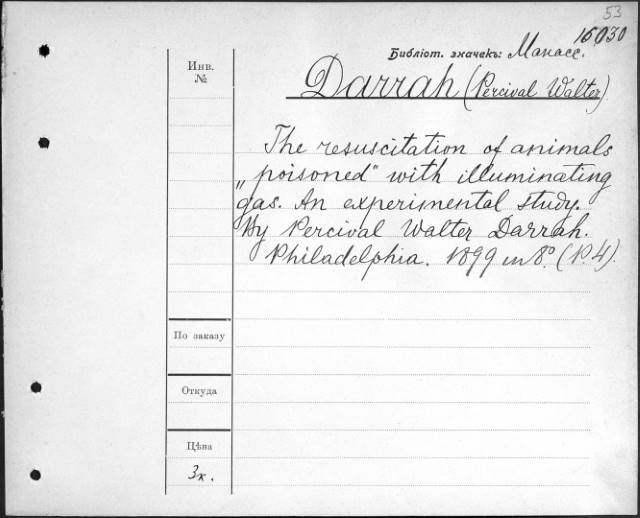 53
16030
Библіот. значекъ: Манасс.
Инв.
№
Darrah (Percival Walter)
The resuscitation of animals
„poisoned“ with illuminating
gas. An experimental study.
By Percival Walter Darrah.
Philadelphia. 1899 in 8º. (P. 4).
По заказу
Откуда
Цѣна
3к.